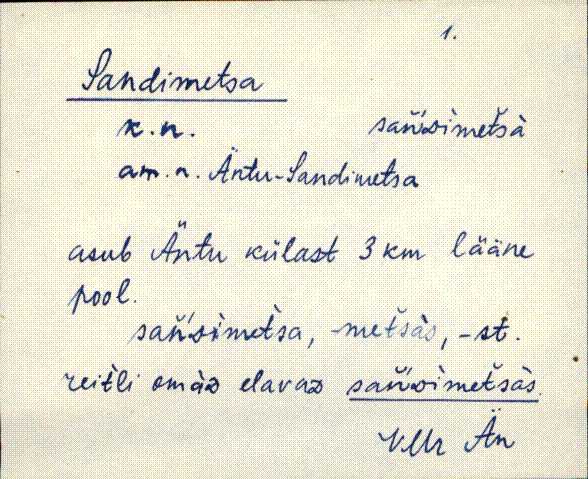 1.
Sandimetsa
k.n. sañ'ᴅìmet̀sà
am.n. Äntu-Sandimetsa
asub Äntu külast 3 km lääne
pool.
sañ'ᴅìmet̀sa, -met̀sàs, -st.
reit̀li omàᴅ elavaᴅ sañ'ᴅìmet̀sàs.
VMr Än